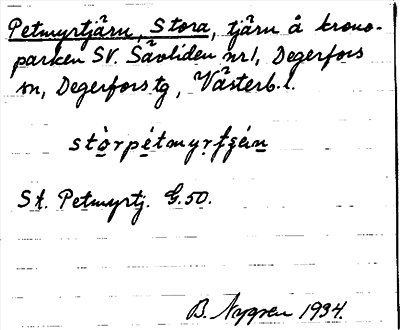 Petmyrtjärn, Stora, tjärn å krono-
parken SV. Sävliden nr 1, Degerfors
sn, Degerfors tg, Västerb. l.
St. Petmyrtj. G.50.
B. Nygren 1934.